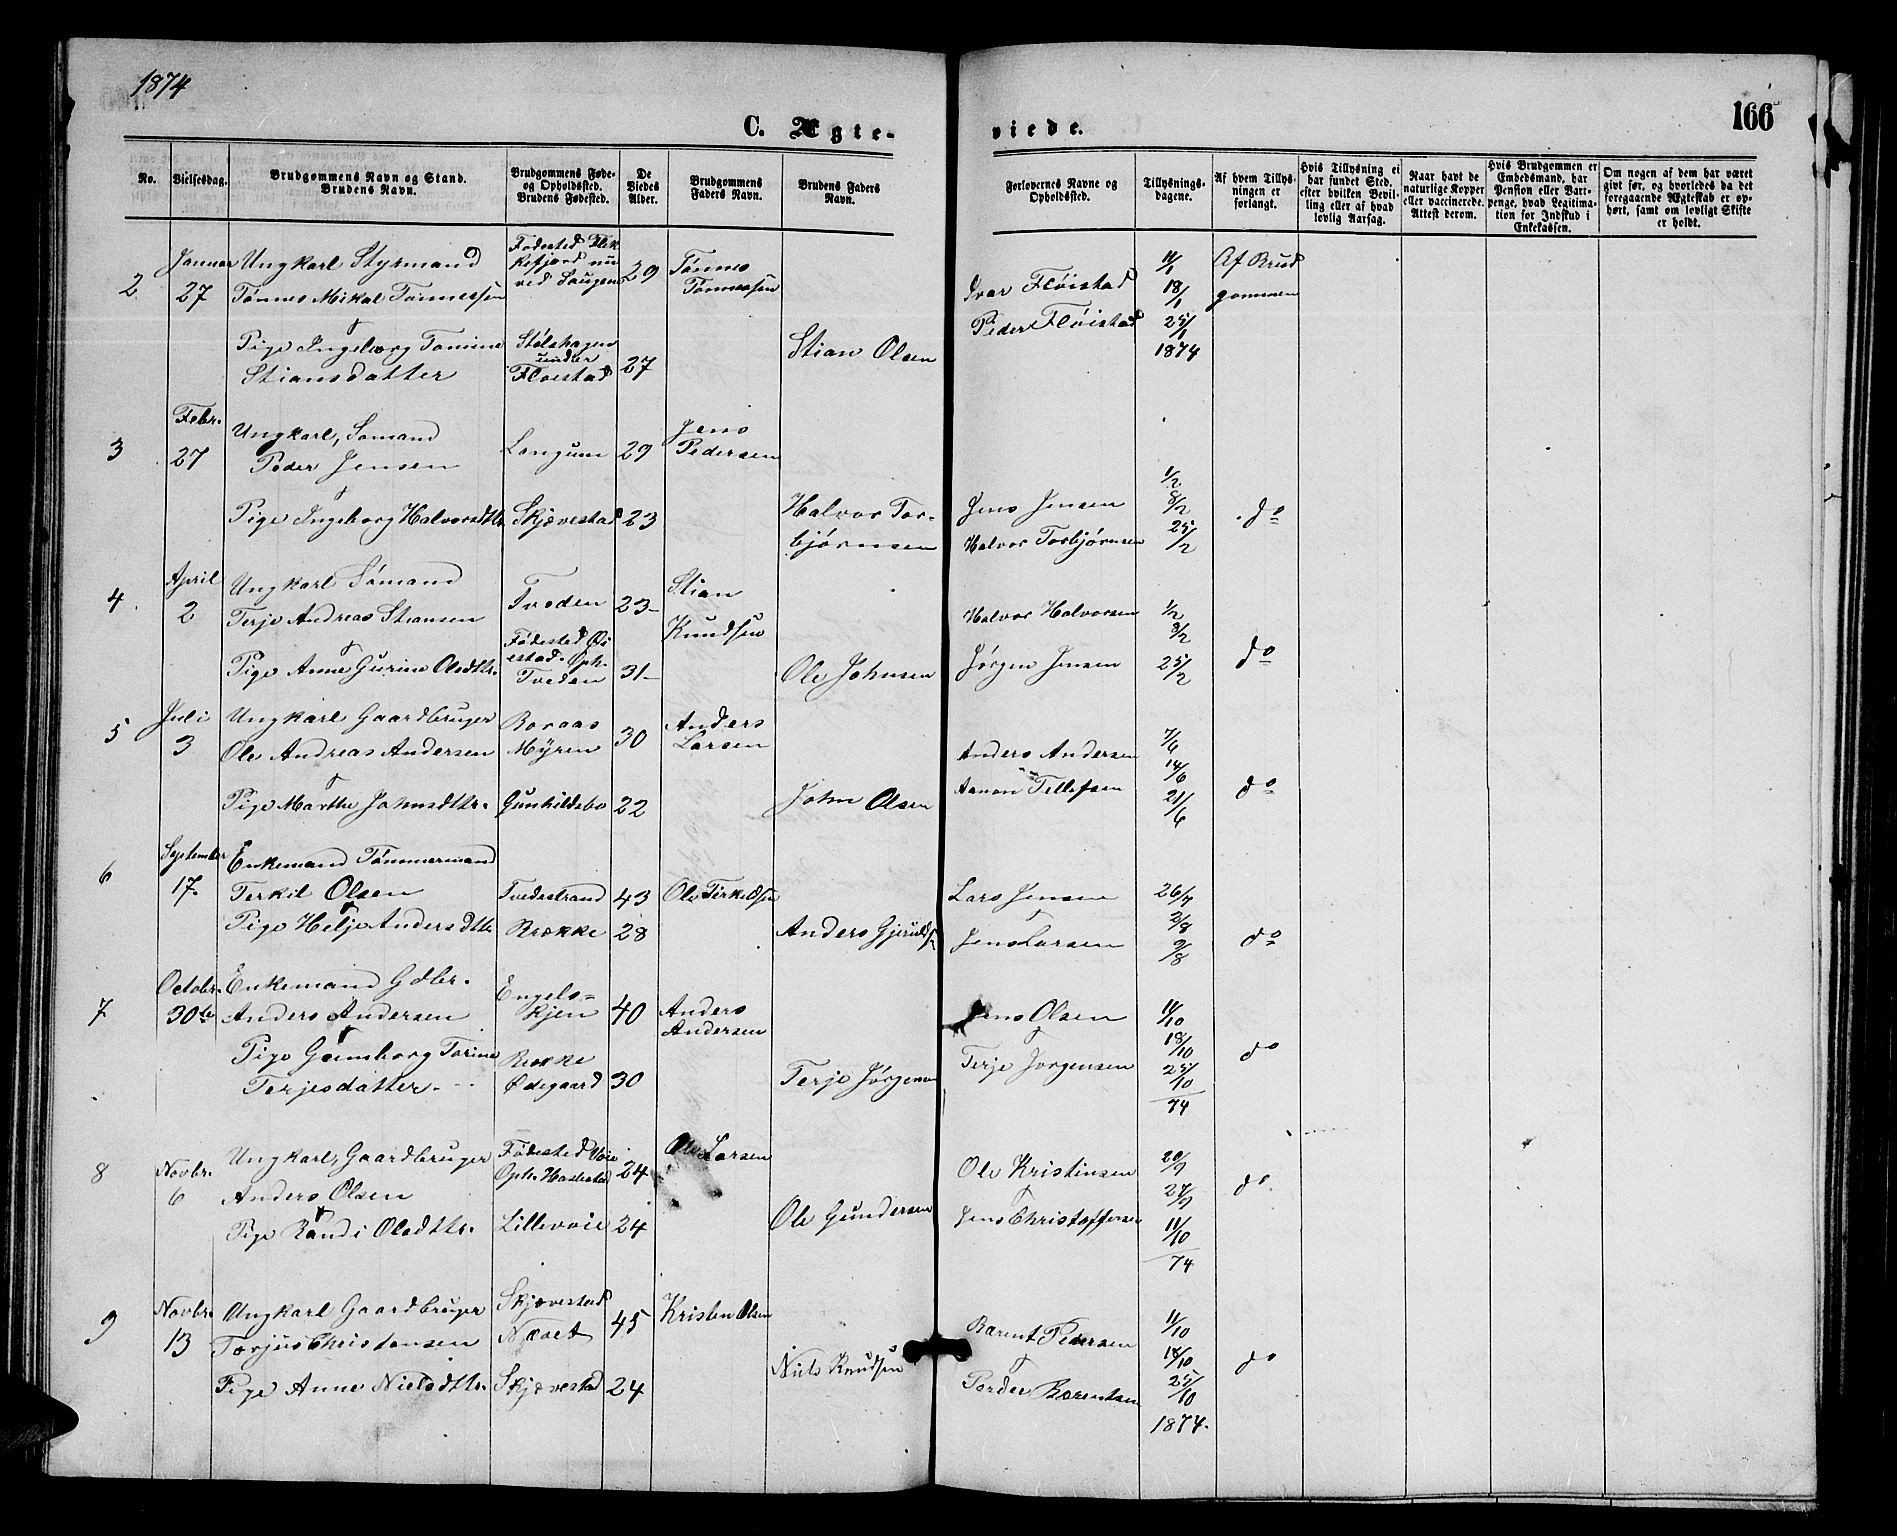 1874
166
C. Ægte-
viede.
No.
Vielsesdag.
Brudgommens Navn og Stand.
Brudens Navn.
Brudgommens Føde-
og Opholdssted.
Brudens Fødested.
De
Viedes
Alder.
Brudgommens
Faders Navn.
Brudens Faders
Navn.
Forlovernes Navne og
Opholdssted.
Tillysnings-
dagene.
Af hvem Tillys-
ningen er
forlangt.
Hvis Tillysning ei
har fundet Sted,
efter hvilken Bevil-
ling eller af hvad
lovlig Aarsag.
Naar havt de
naturlige Kopper
eller vaccinerede.
Attest derom.
Hvis Brudgommen er
Embedsmand, har
Pension eller Vart-
penge, hvad Legitima-
tion for Indskud i
Enkekassen.
Om nogen af dem har været
gift før, og hvorledes da det
foregaaende Ægteskab er op-
hørt, samt om lovligt Skifte
er holdt.
2
Januar
27
Ungkarl Styrmand
Tønnes Mikal Tønnessen
Pige Ingeborg Tomine
Stiansdatter
Fødested Flek
kefjord nu
ved Saugene
Stølshagen
under
Fløistad
29
27
Tønnes
Tønnessen
Stian Olsen
Ivar Fløistad
Peder Fløistad
11/1
18/1
25/1
1874
Af Brud
gommen
3
Febr.
27
Ungkarl, Sømand
Peder Jensen
Pige Ingeborg Halvorsdtr.
Longum
Skjævestad
29
23
Jens
Pedersen
Halvor Tor-
bjørnsen
Jens Jensen
Halvor Torbjørnsen
1/2
8/2
25/2
do
4
April
2
Ungkarl Sømand
Terje Andreas Stiansen
Pige Anne Gurine Olsdtr.
Tveden
Fødested Øi
estad. Oph.
Tveden
23
31
Stian
Knudsen
Ole Johnsen
Halvor Halvorsen
Jørgen Jensen
1/2
8/2
25/2
do
5
Juli
3
Ungkarl Gaardbruger
Ole Andreas Andersen
Pige Marthe Johnsdtr.
Boraas
Myren
Gunhildsbo
30
22
Anders
Larsen
John Olsen
Anders Andersen
Aanon Tellefsen
7/6
14/6
21/6
do
6
September
17
Enkemand Tømmermand
Terkil Olsen
Pige Helje Andersdtr.
Tvedestrand
Brække
43
28
Ole Terkildsen
Anders Gjeruldsn
Lars Jensen
Jens Larsen
26/7
2/8
9/8
do
7
Octobr.
30te
Enkemand Gdbr.
Anders Andersen
Pige Gunborg Torine
Terjesdatter.
Engels-
kjen
Brække
Ødegaard
40
30
Anders
Andersen
Terje Jørgensen
Jens Olsen
Terje Jørgensen
11/10
18/10
25/10
74
do
8
Novbr.
6
Ungkarl, Gaardbruger
Anders Olsen
Pige Randi Olsdtr.
Fødested Voie
Oph. Hastestad
Lillevoie
24
24
Ole Larsen
Ole Gundersen
Ole Kristinsen
Jens Christoffersen
20/9
27/9
11/10
74
do
9
Novbr.
13
Ungkarl Gaardbruger
Torjus Christensen
Pige Anne Nielsdtr.
Skjævestad
Næset
Skjævestad
45
24
Kristen Olsen
Niels Knudsen
Barent Pedersen
Peder Barentsen
11/10
18/10
25/10
1874.
do